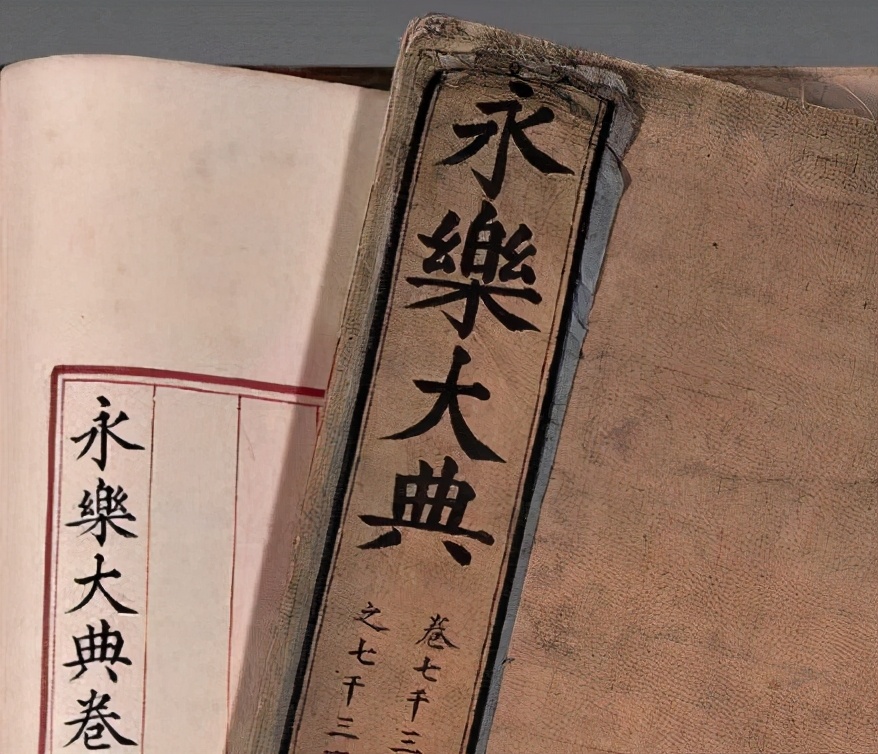 永樂大典
卷七千三
之七千三
永樂大典卷